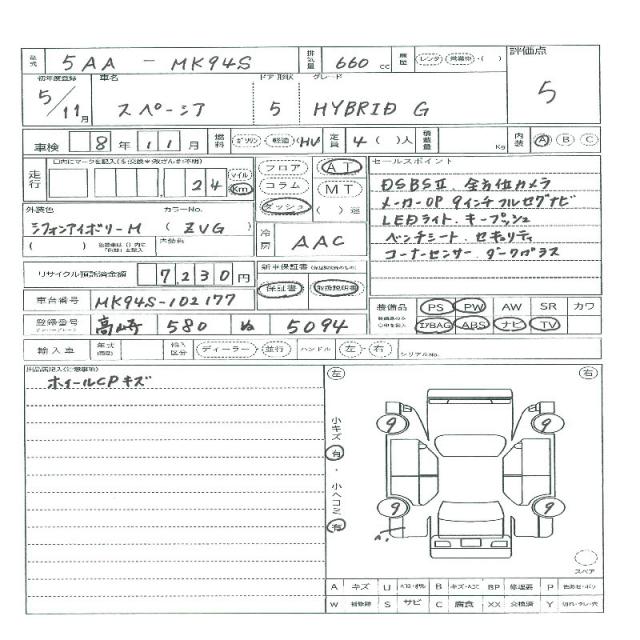 型式 5AA - MK94S 排気量 660 cc 履歴 レンタ ・( ) 評価点
初年度登録 車名 ドア形状 グレード
5/11月 スペーシア 5 HYBRID G 5
車検 8年11月 燃料 ガソリン 軽油 (HV) 定員 4( )人 積載量 Kg 内装 A B C
走行 24 マイル Km フロア コラム ダッシュ AT MT ( )速 セールスポイント
DSBSⅡ. 全方位カメラ
メーカーOP 9インチフルセグナビ
LEDライト. キープッシュ
ベンチシート. セキュリティ
コーナーセンサー. ダークガラス
外装色 カラーNo.
シフォンアイボリーM (ZVG)
冷房 AAC
リサイクル預託済金額 7,230円 新車保証書 保証書 取扱説明書
車台番号 MK94S-102177
装備品 PS PW AW SR カワ
AIRBAG ABS ナビ TV
登録番号 高崎 580 ぬ 5094
輸入車 年式 輸入区分 ディーラー・並行 ハンドル 左・右 シリアルNo.
ホイールCPキズ
左 右
小キズ 有・小ヘコミ 有
9 9
9 9
スペア
A キズ U B キズ・ヘコミ BP 修理要 P 色あせ・ボケ
W 補修跡 S サビ C 腐食 XX 交換済 Y 切れ・ワレ・穴